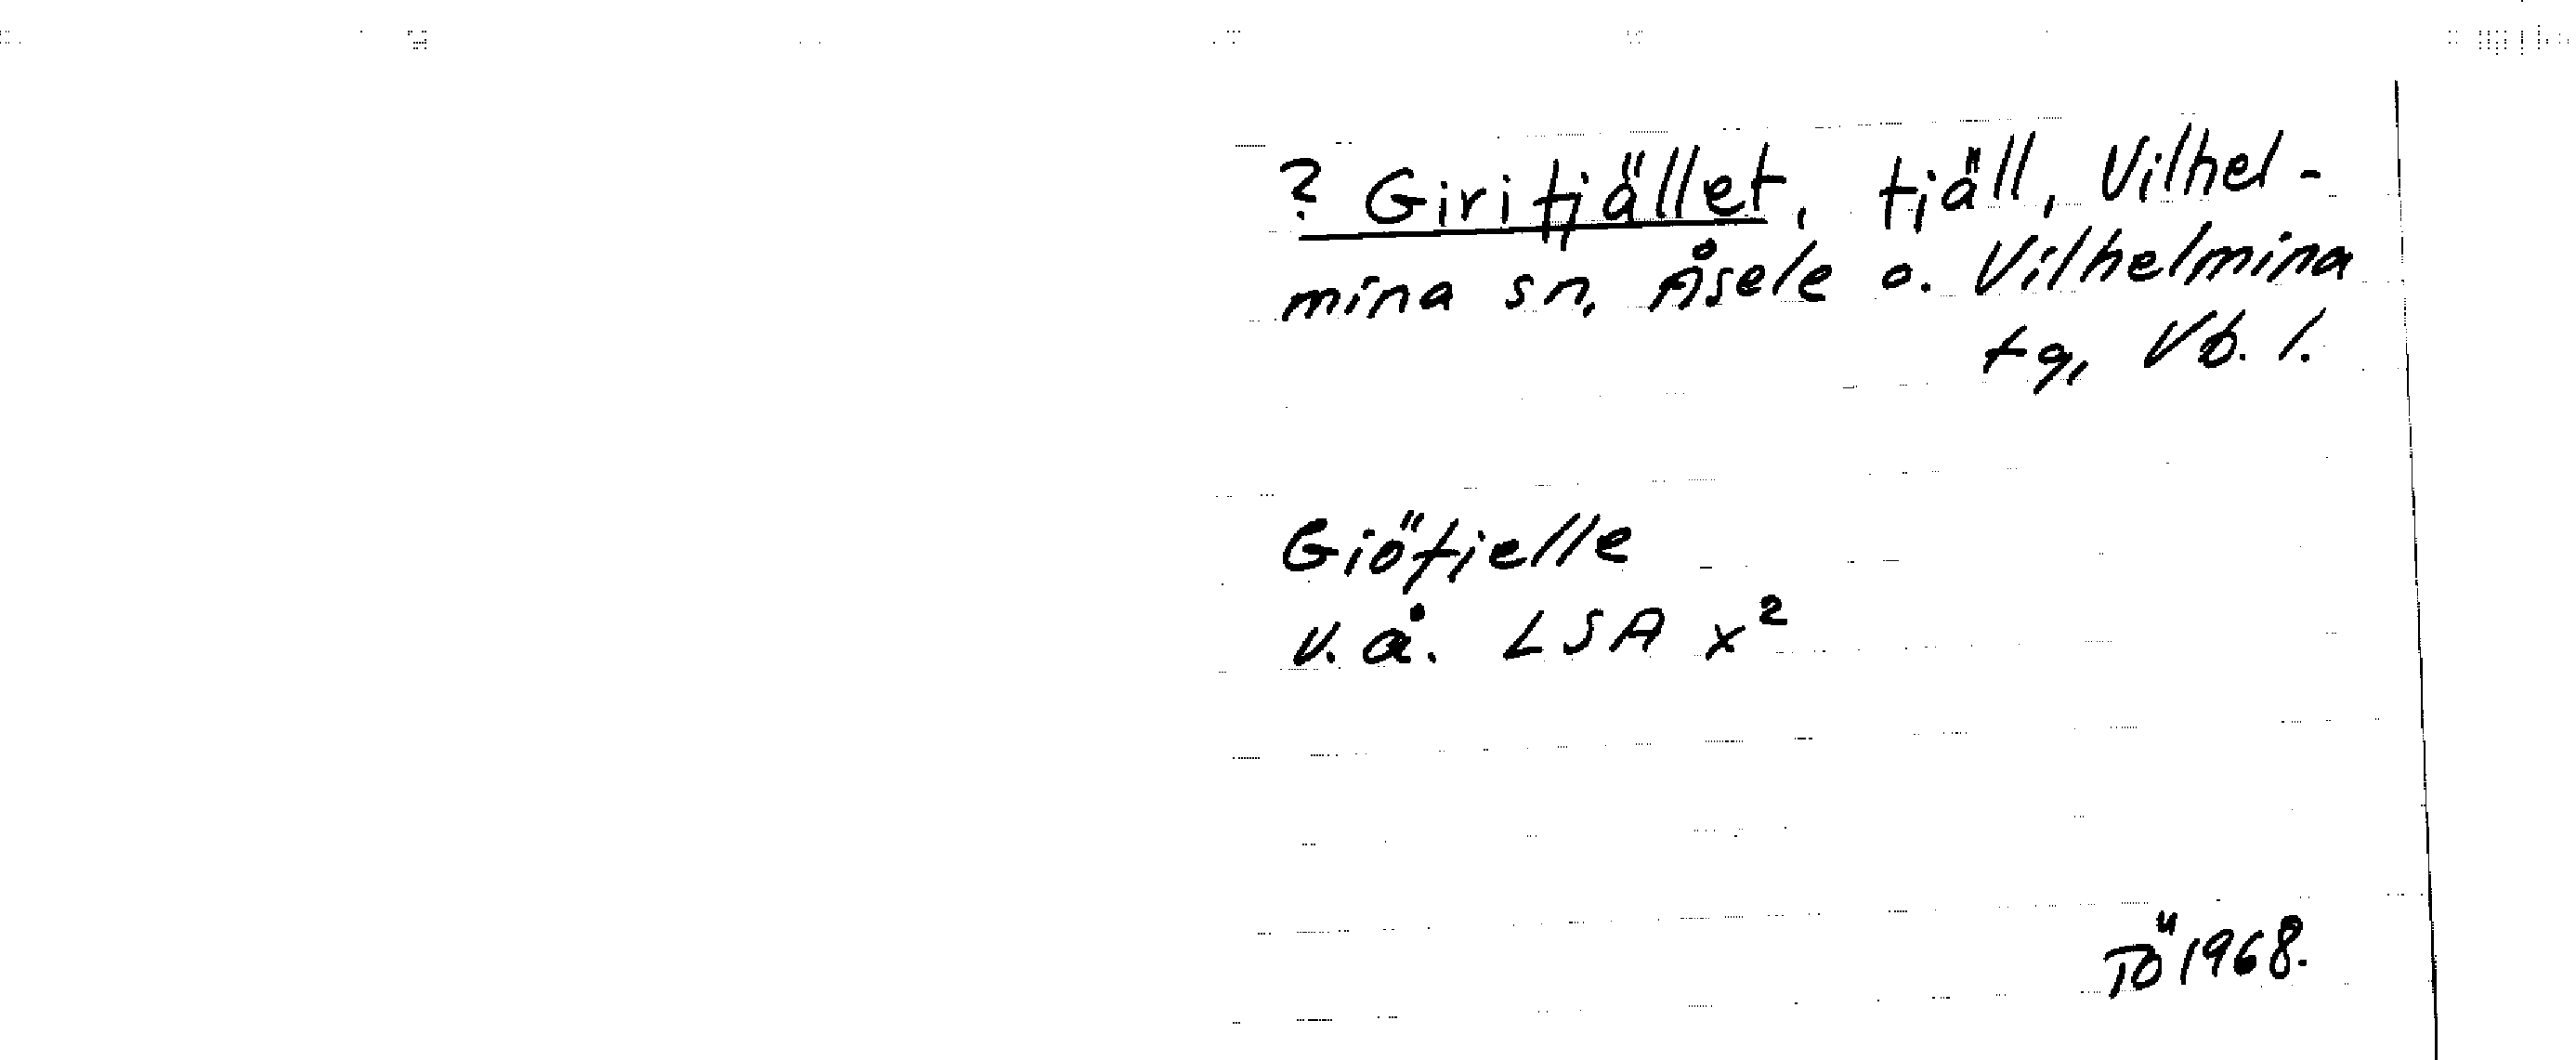 ? Girifjället, fjäll, Vilhel-
mina sn. Åsele o. Vilhelmina
tg, Vb. l.
Giöfjelle
u. å. LSA x²
TÖ 1968.